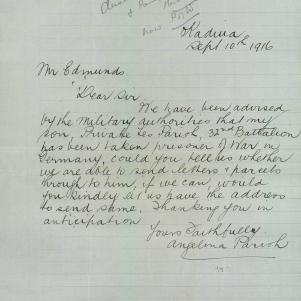 Kadina
Sept 10th 1916
Mr Edmunds
Dear Sir
We have been advised
by the Military authorities that my
son, Private Les Parish, 32nd Battalion
has been taken prisoner of War, in
Germany, could you tell us whether
we are able to send letters & parcels
through to him, if we can, would
you kindly let us have the address
to send same, Thanking you in
anticipation
Yours Faithfully
Angelina Parish